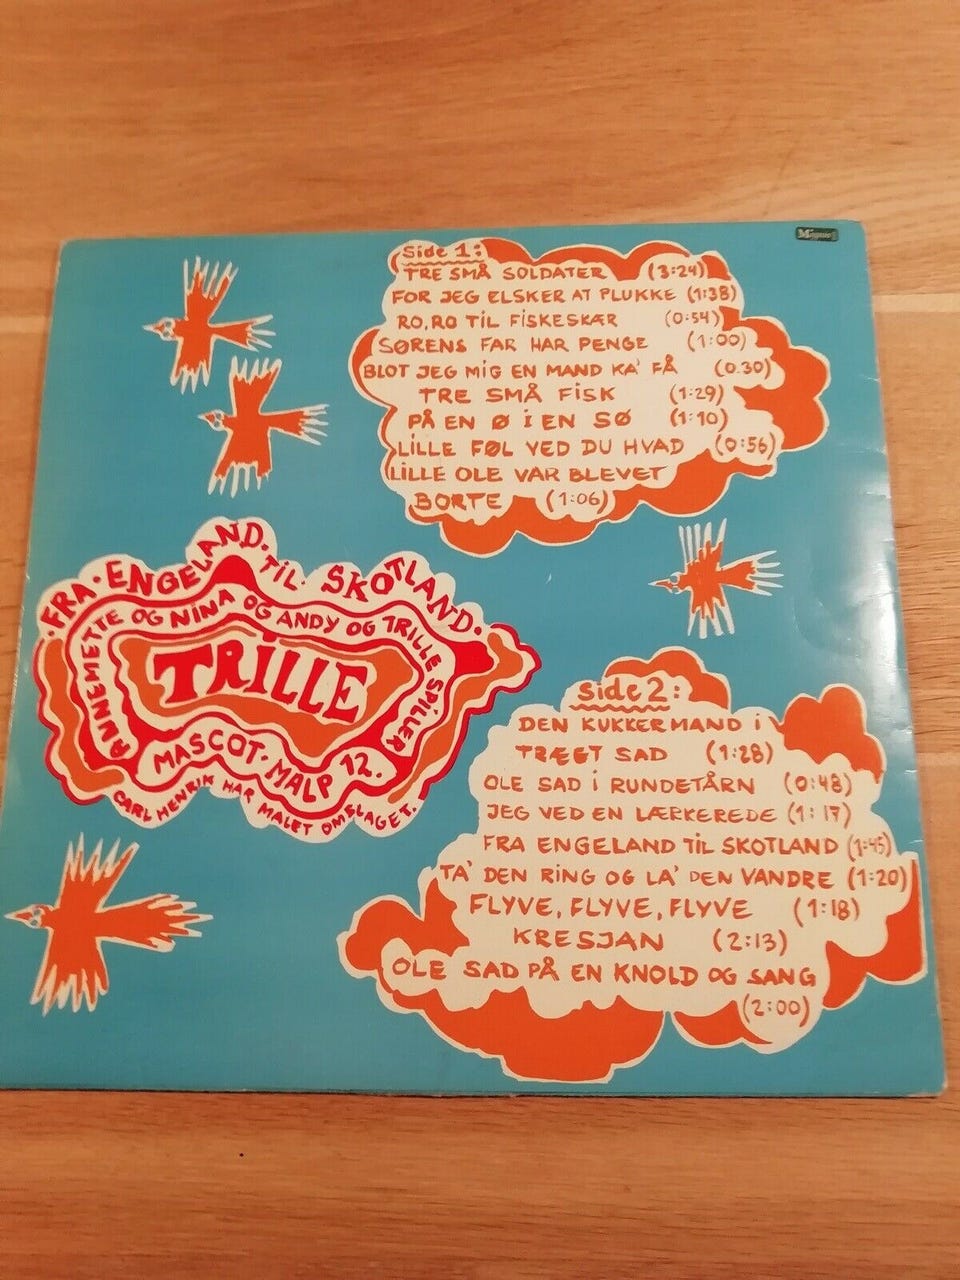 Side 1:
TRE SMÅ SOLDATER (3:24)
FOR JEG ELSKER AT PLUKKE (1:38)
RO, RO TIL FISKESKÆR (0:54)
SØRENS FAR HAR PENGE (1:00)
BLOT JEG MIG EN MAND KA' FÅ (0.30)
TRE SMÅ FISK (1:29)
PÅ EN Ø I EN SØ (1:10)
LILLE FØL VED DU HVAD (0:56)
LILLE OLE VAR BLEVET
BORTE (1:06)
FRA · ENGELAND · TIL · SKOTLAND ·
ANNEMETTE OG NINA OG ANDY OG TRILLE SPILLER
TRILLE
MASCOT · MALP 12.
CARL HENRIK HAR MALET OMSLAGET.
Side 2:
DEN KUKKERMAND I
TRÆET SAD (1:28)
OLE SAD I RUNDETÅRN (0:48)
JEG VED EN LÆRKEREDE (1:17)
FRA ENGELAND TIL SKOTLAND (1:45)
TA' DEN RING OG LA' DEN VANDRE (1:20)
FLYVE, FLYVE, FLYVE (1:18)
KRESJAN (2:13)
OLE SAD PÅ EN KNOLD OG SANG
(2:00)